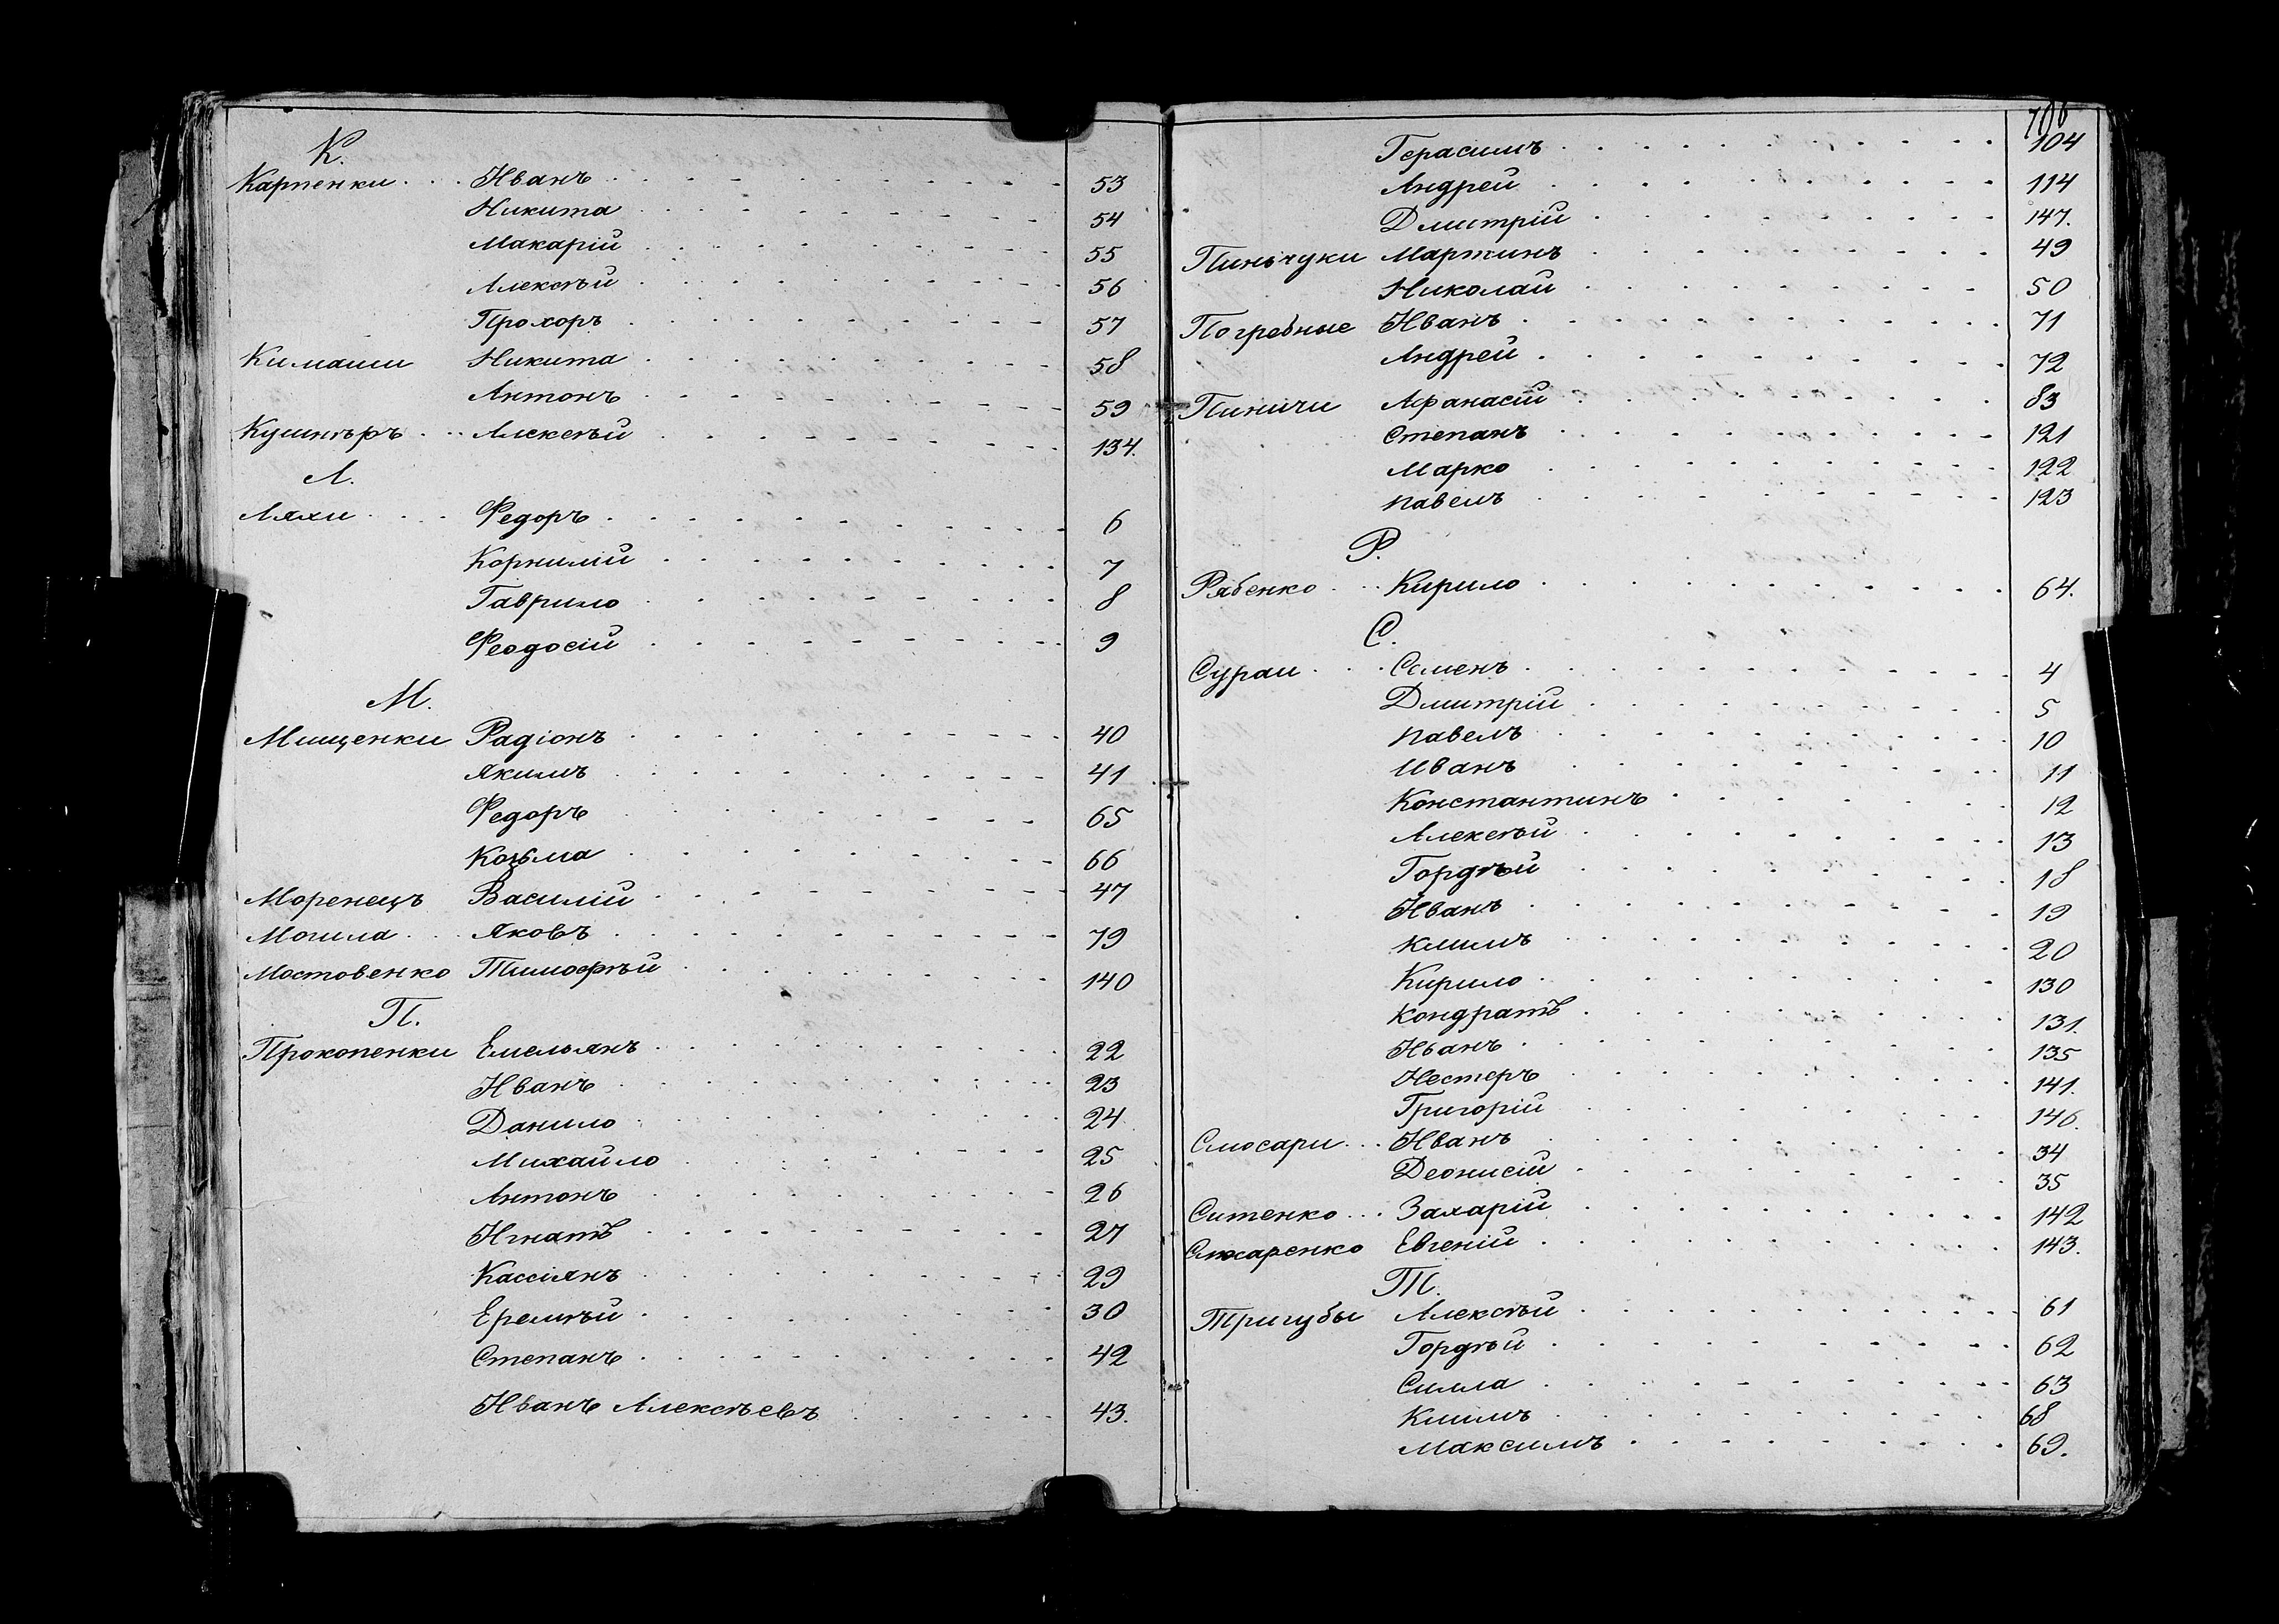 К.
Карпенки Иванъ 53
Никита 54
Макарій 55
Алексѣй 56
Прохоръ 57
Кимаши Никита 58
Антонъ 59
Кушнѣръ Алексѣй 134.
Л.
Ляхи Федоръ 6
Корнилій 7
Гаврило 8
Феодосій 9
М.
Мищенки Радіонъ 40
Якимъ 41
Федоръ 65
Козьма 66
Моренецъ Василій 47
Могила Яковъ 79
Мостовенко Тимофѣй 140
П.
Прокопенки Емельянъ 22
Иванъ 23
Данило 24
Михайло 25
Антонъ 26
Игнатъ 27
Кассіянъ 29
Еремѣй 30
Степанъ 42
Иванъ Алексѣевъ 43.
706
Герасимъ 104
Андрей 114
Дмитрій 147.
Пиньчуки Мартинъ 49
Николай 50
Погребные Иванъ 71
Андрей 72
Пиничи Афанасій 83
Степанъ 121
Марко 122
Павелъ 123
Р.
Рябенко Кирило 64.
С.
Сураи Семенъ 4
Дмитрій 5
Павелъ 10
Иванъ 11
Константинъ 12
Алексѣй 13
Гордѣй 18
Иванъ 19
Климъ 20
Кирило 130
Кондратъ 131.
Иванъ 135
Нестеръ 141.
Григорій 146.
Слюсари Иванъ 34
Деонисій 35
Ситенко Захарій 142
Евгеній 143.
Т.
Тригубы Алексѣй 61
Гордѣй 62
Силла 63
Климъ 68
Максимъ 69.